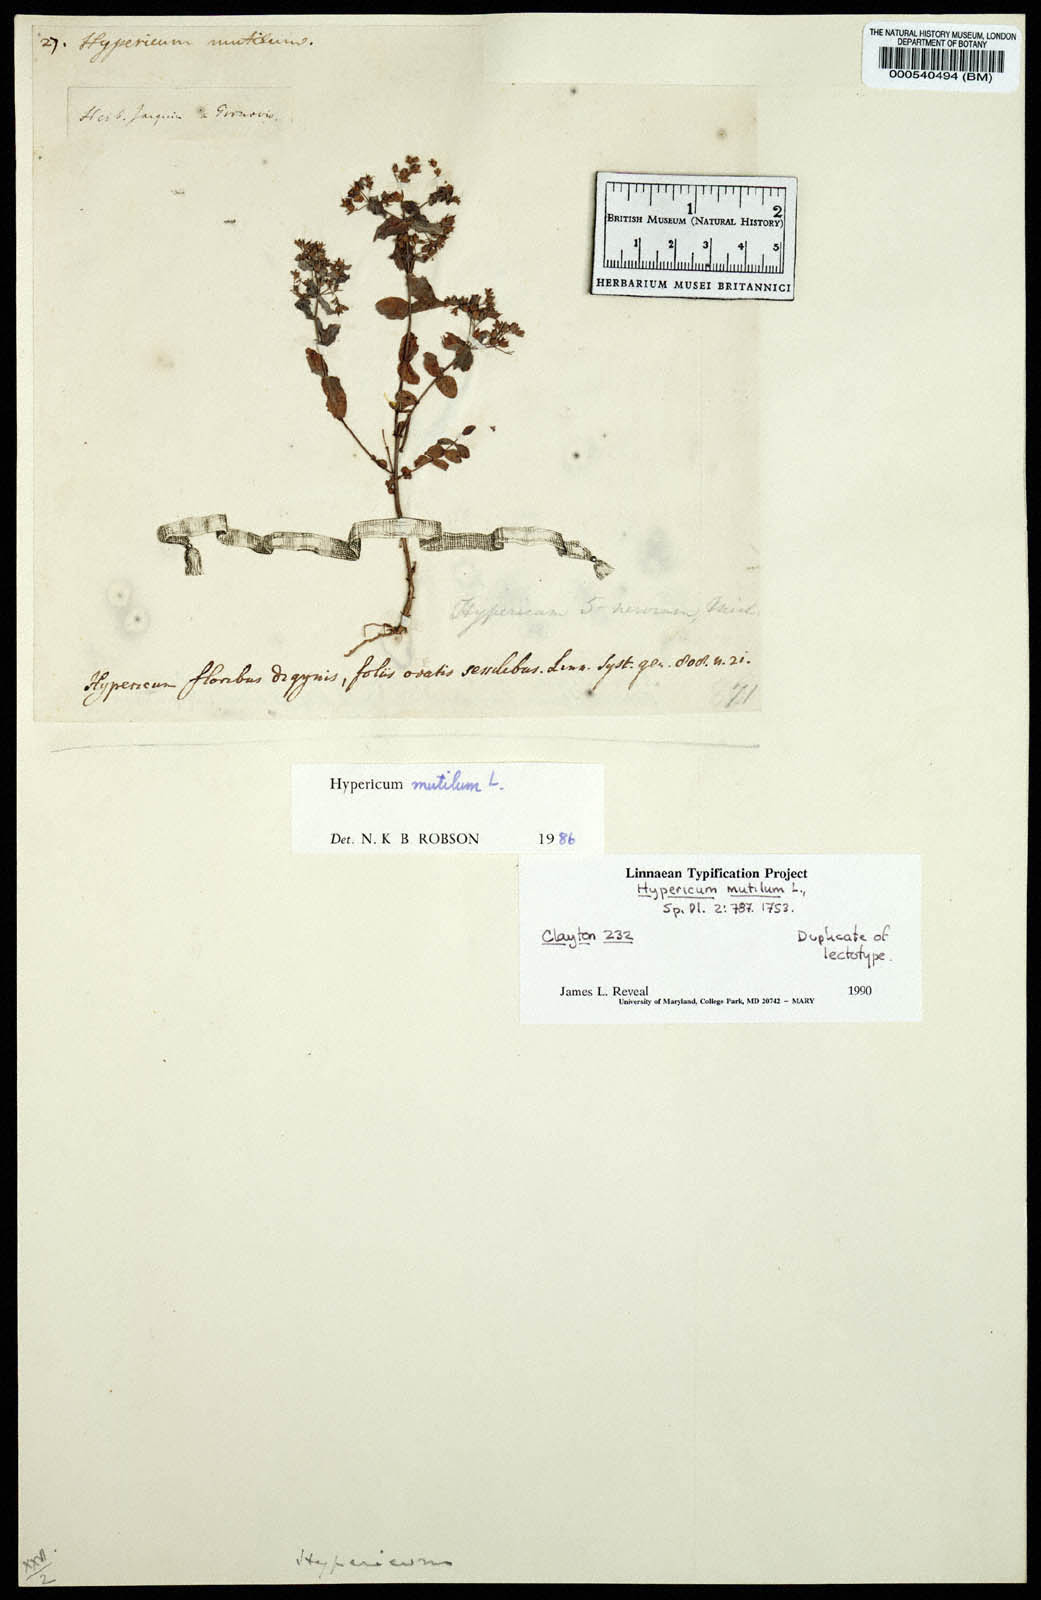 27. Hypericum mutilum.
THE NATURAL HISTORY MUSEUM, LONDON
DEPARTMENT OF BOTANY
000540494 (BM)
Herb. Jacquin a Gronovio.
1 2
BRITISH MUSEUM (NATURAL HISTORY)
1 2 3 4 5
HERBARIUM MUSEI BRITANNICI
Hypericum 5-
Hypericum floribus digynis, foliis ovatis sessilibus. Linn. Syst. gen. 808. n. 21.
71
Hypericum mutilum L.
Det. N. K B ROBSON 1986
Linnaean Typification Project
Hypericum mutilum L.,
Sp. Pl. 2: 787. 1753.
Clayton 232 Duplicate of
lectotype.
James L. Reveal 1990
University of Maryland, College Park, MD 20742 – MARY
XXVI
2
Hypericum